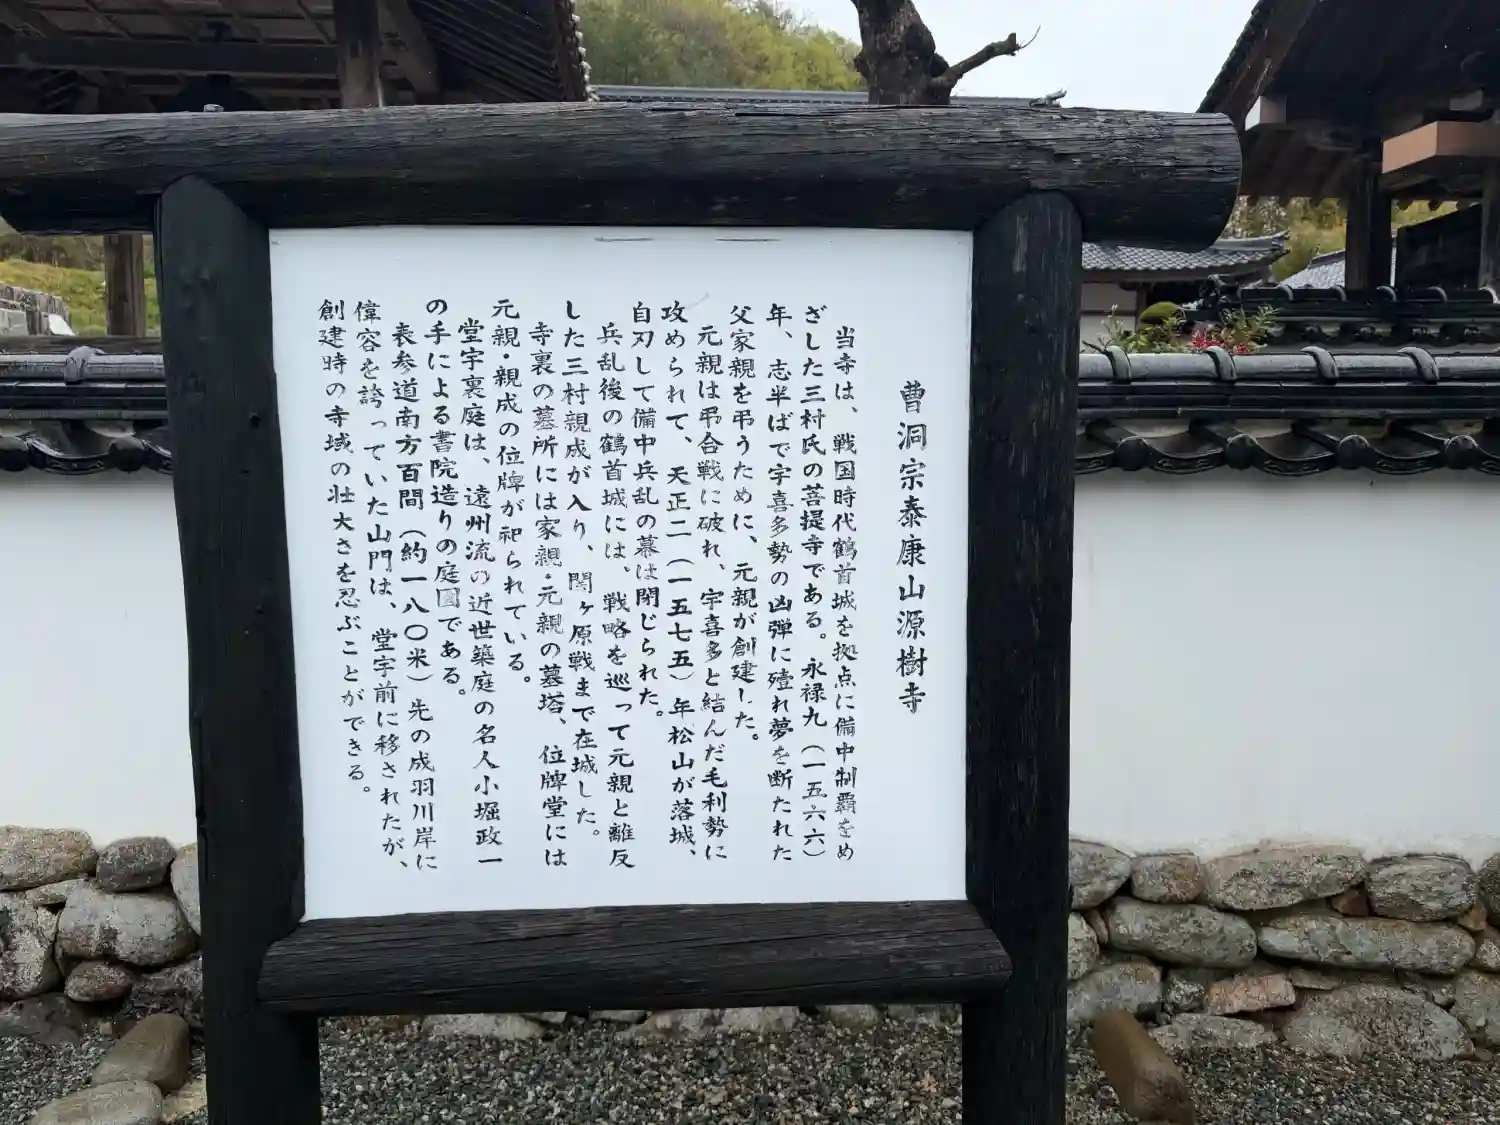 曹洞宗泰康山源樹寺
当寺は、戦国時代鶴首城を拠点に備中制覇をめ
ざした三村氏の菩提寺である。永禄九（一五六六）
年、志半ばで宇喜多勢の凶弾に殪れ夢を断たれた
父家親を弔うために、元親が創建した。
元親は弔合戦に破れ、宇喜多と結んだ毛利勢に
攻められて、天正二（一五七五）年松山が落城、
自刃して備中兵乱の幕は閉じられた。
兵乱後の鶴首城には、戦略を巡って元親と離反
した三村親成が入り、関ヶ原戦まで在城した。
寺裏の墓所には家親・元親の墓塔、位牌堂には
元親・親成の位牌が祀られている。
堂宇裏庭は、遠州流の近世築庭の名人小堀政一
の手による書院造りの庭園である。
表参道南方百間（約一八〇米）先の成羽川岸に
偉容を誇っていた山門は、堂宇前に移されたが、
創建時の寺域の壮大さを忍ぶことができる。